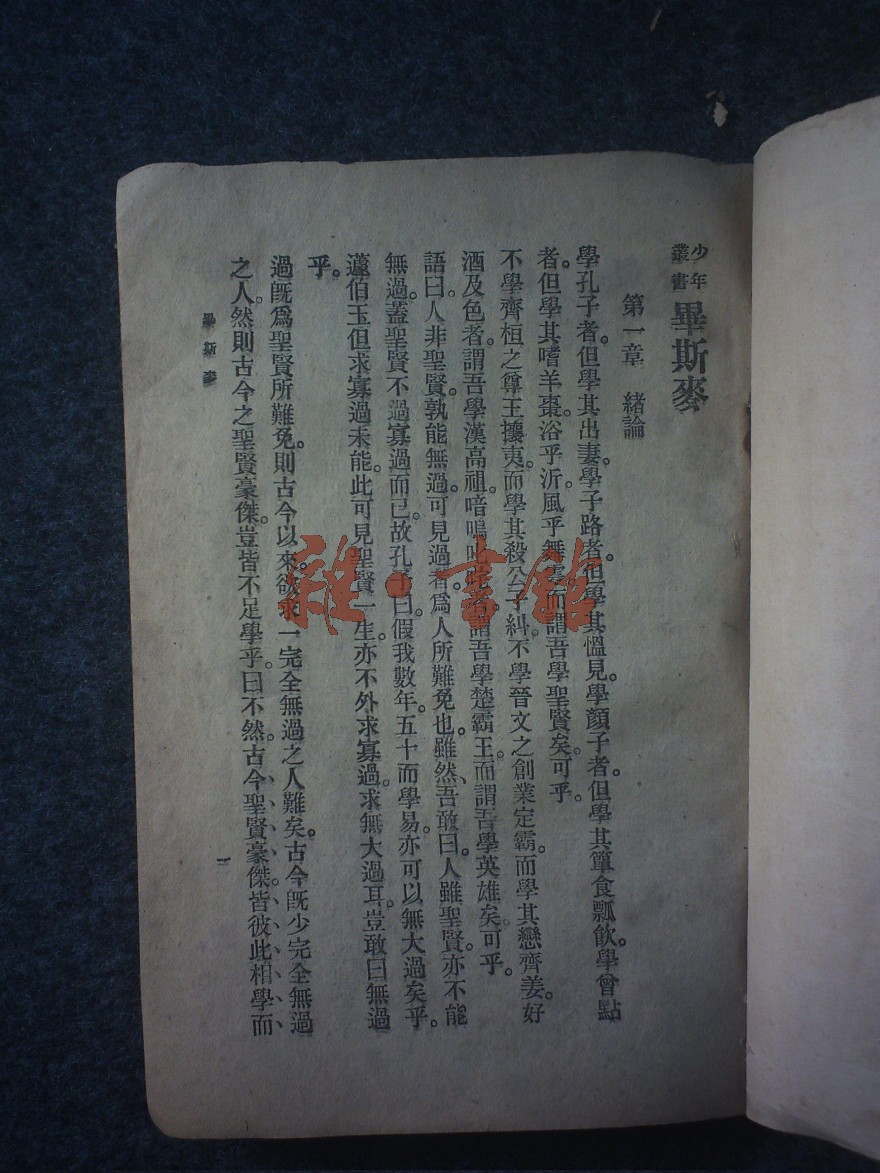 少年叢書 畢斯麥
第一章 緒論
學孔子者。但學其出妻。學子路者。但學其慍見。學顏子者。但學其簞食瓢飲。學曾點
者。但學其嗜羊棗。浴乎沂。風乎舞雩。而謂吾學聖賢矣。可乎。
不學齊桓之尊王攘夷。而學其殺公子糾。不學晉文之創業定霸。而學其戀齊姜。好
酒及色者。謂吾學漢高祖。喑嗚叱咤者。謂吾學楚霸王。而謂吾學英雄矣。可乎。
語曰。人非聖賢。孰能無過。可見過者。爲人所難免也。雖然、吾敢曰。人雖聖賢。亦不能
無過。蓋聖賢不過寡過而已。故孔子曰。假我數年。五十而學易。亦可以無大過矣乎。
蘧伯玉但求寡過未能。此可見聖賢一生。亦不外求寡過。求無大過耳。豈敢曰無過
乎。
過旣爲聖賢所難免。則古今以來。欲求一完全無過之人難矣。古今旣少完全無過
之人。然則古今之聖賢豪傑。豈皆不足學乎。曰不然。古今聖賢豪傑。皆彼此相學而
畢斯麥
一
雜·書館